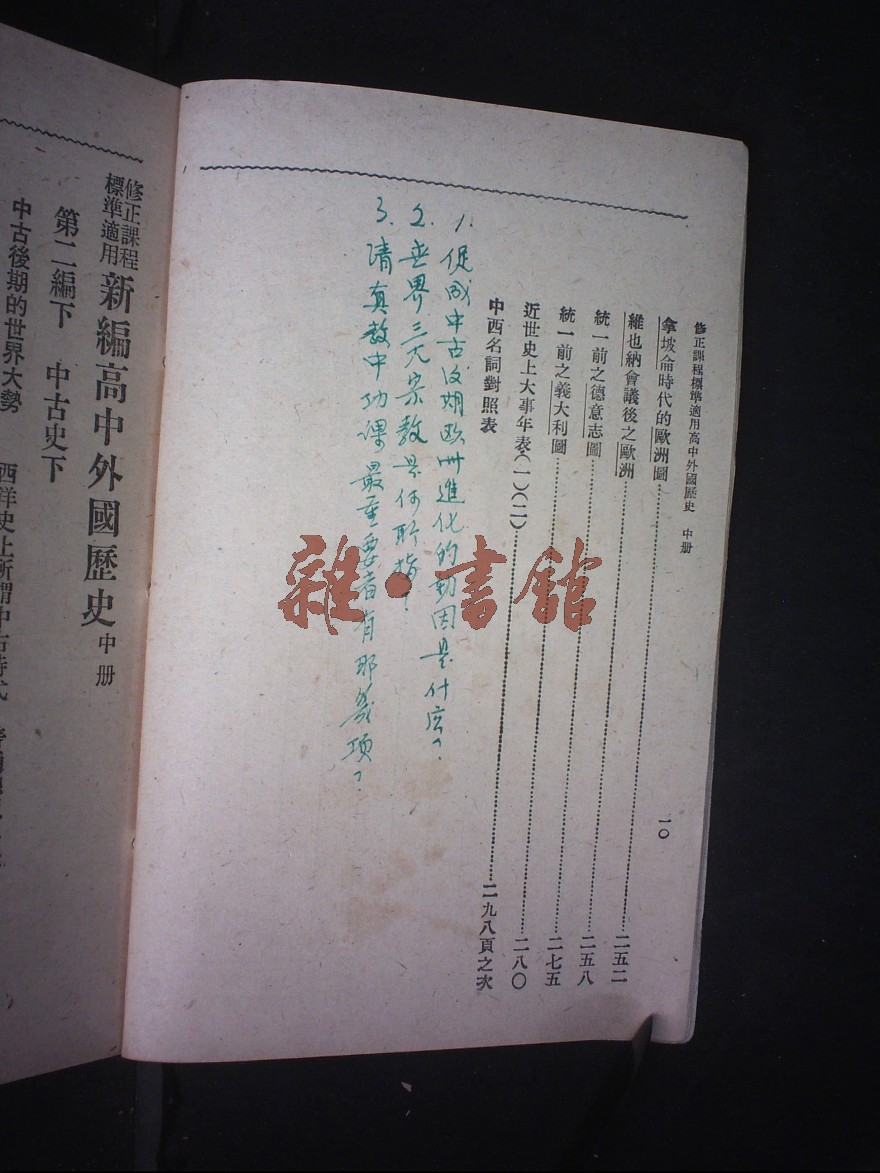 修正課程標準適用高中外國歷史 中册
一〇
拿坡侖時代的歐洲圖……二五二
維也納會議後之歐洲……二五八
統一前之德意志圖……二七五
統一前之義大利圖……二八〇
近世史上大事年表(一)(二)……二九八頁之次
中西名詞對照表
1. 促成中古后期欧州進化的動因是什広?
2. 世界三大宗教是何所指?
3. 清真教中功课最重要者有那幾項?
雜·書館
修正課程
標準適用
新編高中外國歷史 中册
第二編下 中古史下
中古後期的世界大勢
西洋史上所謂中古時代